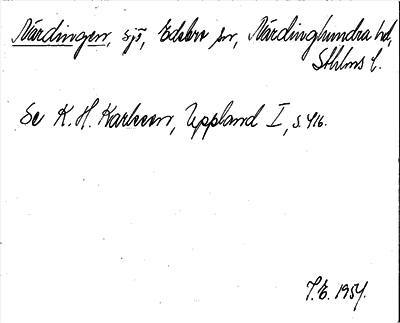 Närdingen, sjö, Edebo sn, Närdinghundra hd,
Sthlms l.
Se K. H. Karlsson, Uppland I, s. 416.
T. E. 1954.